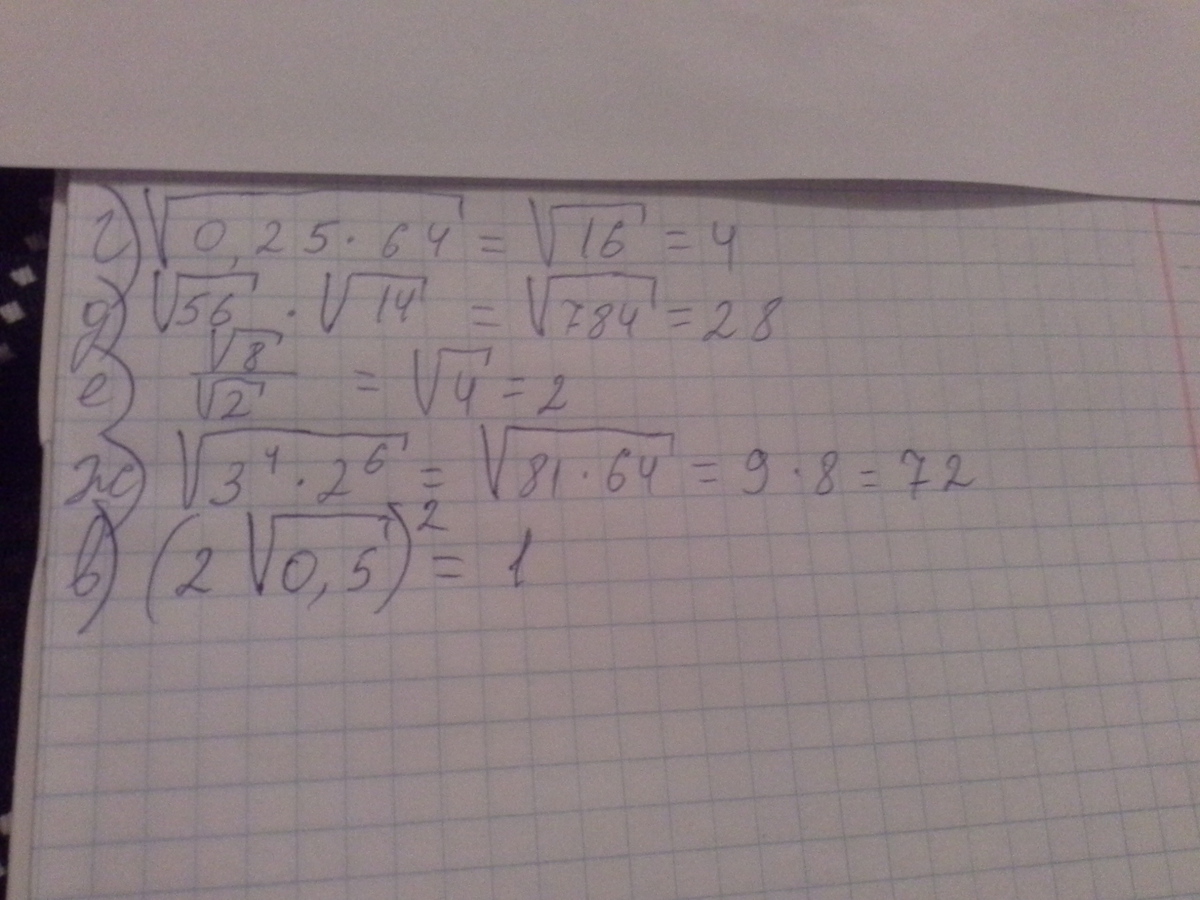 г) √0,25·64 = √16 = 4
д) √56 · √14 = √784 = 28
е) √8/√2 = √4 = 2
ж) √3⁴·2⁶ = √81·64 = 9·8 = 72
в) (2√0,5)² = 1